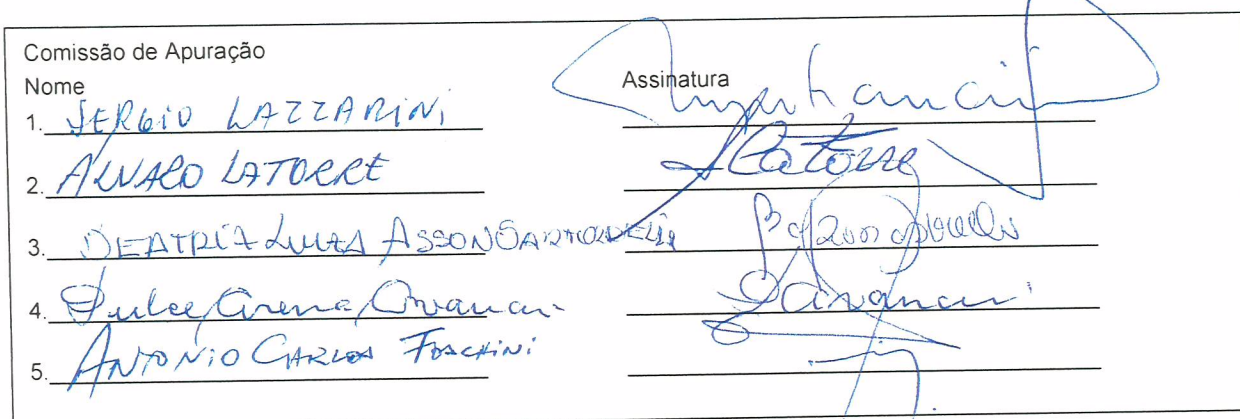 Comissão de Apuração
Nome Assinatura
1. SERGIO LAZZARINI
2. ALVARO LATORRE Latorre
3. BEATRIZ LUIZA ASSON SARTORELLI
4. Dulce Arena Avancini DAvancini
5. ANTONIO CARLOS FOSCHINI